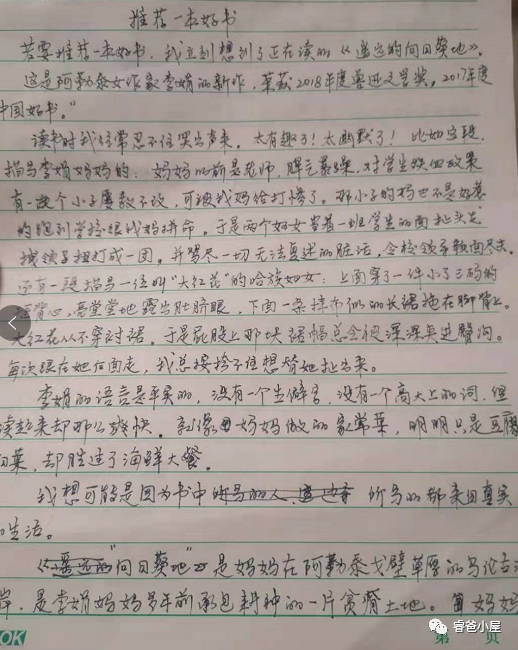 推荐一本好书
若要推荐一本好书，我立刻想到了正在读的《遥远的向日葵地》。
这是阿勒泰女作家李娟的新作，荣获2018年度鲁迅文学奖。2017年度
中国好书。”
读书时我经常忍不住笑出声来，太有趣了！太幽默了！比如这段
描写李娟妈妈的：妈妈以前是老师，脾气暴躁，对学生
有一次一个小子屡教不改，可被我妈给打惨了。那小子的妈也不是好惹
的跑到学校跟我妈拼命，于是两个妇女当着一班学生的面扯头发
拽领子扭打成一团。并骂尽一切无法复述的脏话，令校领导颜面尽失。
还有一段描写一位叫“大红花”的哈族妇女：上面穿了一件小了三码的
背心，亮堂堂地露出肚脐眼，下面一条抹布似的长裙拖在脚背上。
大红花从不穿衬裙，于是屁股上那块裙幅总会被深深夹进臀沟。
每次跟在她后面走，我总按捺不住想替她扯出来。
李娟的语言是平实的，没有一个生僻字，没有一个高大上的词，但
读起来却那么爽快。就像妈妈做的家常菜，明明只是豆腐
白菜，却胜过了海鲜大餐。
我想可能是因为书中所写的都来自真实
的生活。
《“向日葵地”是妈妈在阿勒泰戈壁草原的乌伦古河
岸，是李娟妈妈多年前承包耕种的一片贫瘠土地。妈妈
OK
第 页
睿爸小屋